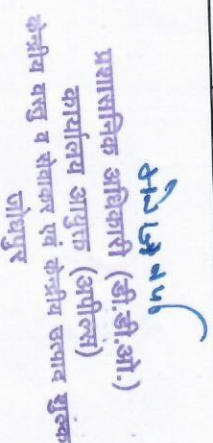 प्रशासनिक अधिकारी (डी.डी.ओ.)
कार्यालय आयुक्त (अपील्स)
केन्द्रीय वस्तु व सेवाकर एवं केन्द्रीय उत्पाद शुल्क
जोधपुर